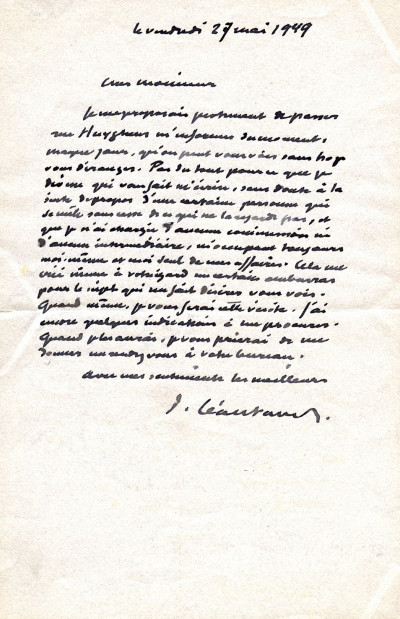 le vendredi 27 mai 1949
Cher monsieur
Je me proposais justement de passer
rue Huyghens m'informer du moment,
chaque jour, qu'on peut vous voir sans trop
vous déranger. Pas du tout pour ce que je
devine qui vous fait m'écrire, sans doute à la
suite de propos d'une certaine personne qui
se mêle sans cesse de ce qui ne la regarde pas, et
que je n'ai chargée d'aucune commission ni
d'aucun intermédiaire, m'occupant toujours
moi-même et moi seul de mes affaires. Cela me
crée même à votre égard un certain embarras
pour le sujet qui me fait désirer vous voir.
Quand même, je vous ferai cette visite. J'ai
encore quelques indications à me procurer.
Quand je les aurai, je vous prierai de me
donner un rendez-vous à votre bureau.
Avec mes sentiments les meilleurs
P. Léautaud.